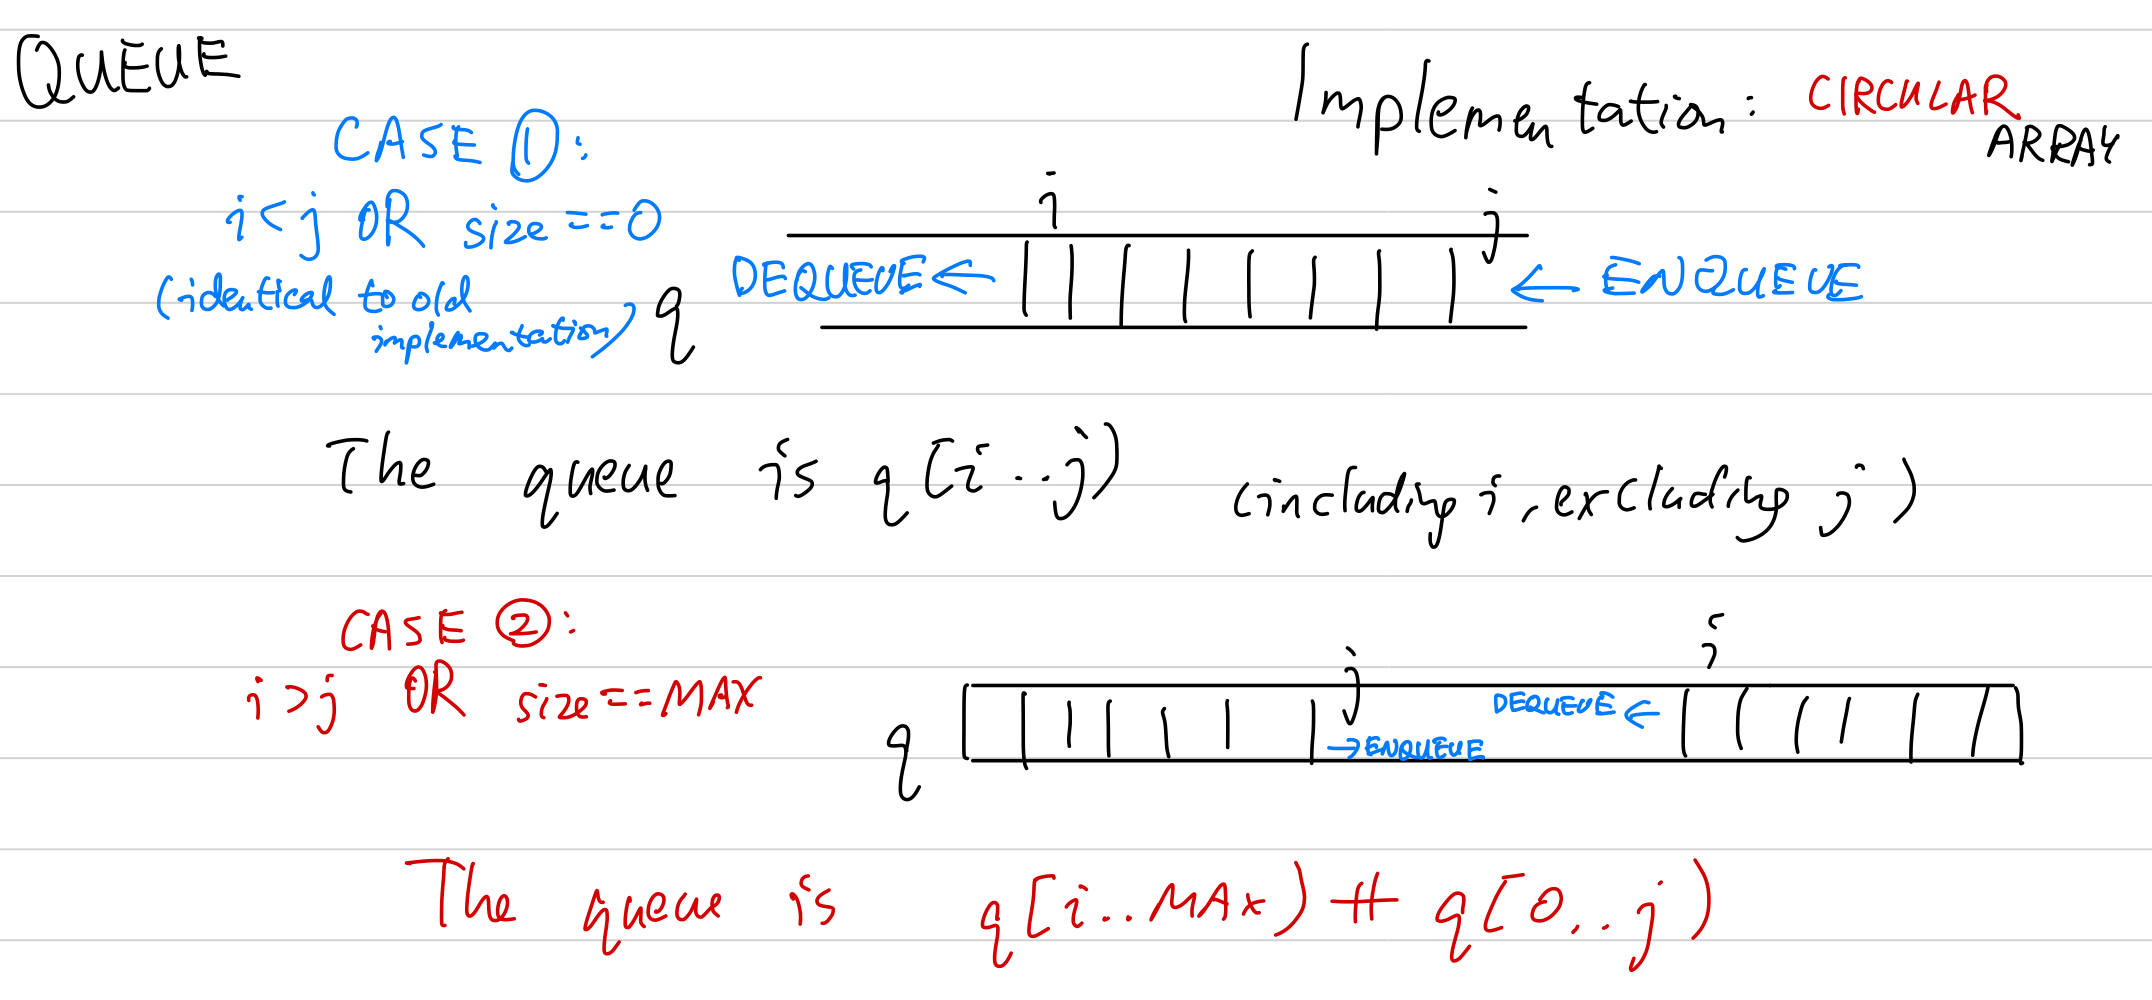 QUEUE
Implementation: CIRCULAR
ARRAY
CASE ①:
i<j OR size==0
(identical to old
implementation)
i
j
q
DEQUEUE ←
← ENQUEUE
The queue is q[i..j) (including i, excluding j)
CASE ②:
i>j OR size==MAX
j
i
q
→ ENQUEUE
DEQUEUE ←
The queue is q[i..MAX) ++ q[0..j)